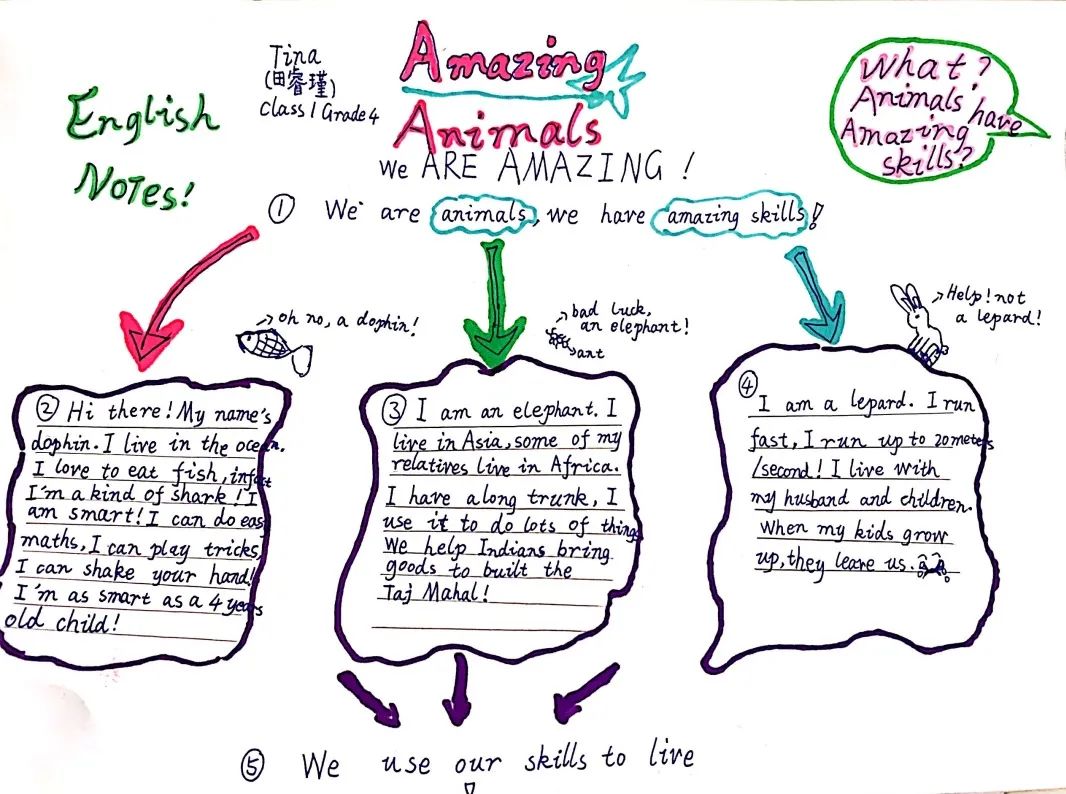 English
Notes!
Tina
(田睿瑾)
Class 1 Grade 4
Amazing
Animals
We ARE AMAZING !
What?
Animals' have
Amazing
skills?
① We are animals, we have amazing skills!
oh no, a dophin!
bad luck,
an elephant!
ant
Help! not
a lepard!
② Hi there! My name's
dophin. I live in the ocean.
I love to eat fish, infact
I'm a kind of shark! I
am smart! I can do easy
maths, I can play tricks,
I can shake your hand!
I'm as smart as a 4 years
old child!
③ I am an elephant. I
live in Asia, some of my
relatives live in Africa.
I have along trunk, I
use it to do lots of things
We help Indians bring
goods to built the
Taj Mahal!
④
I am a lepard. I run
fast, I run up to 20 meters
/second! I live with
my husband and children.
When my kids grow
up, they leave us.
⑤ We use our skills to live
!